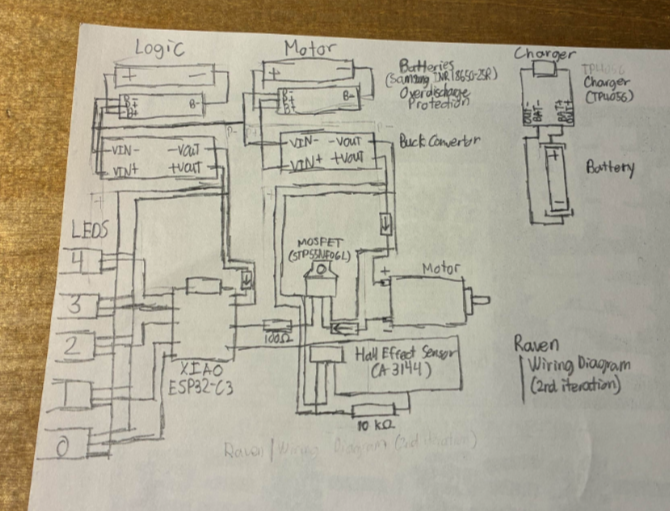 Logic
Motor
Charger
+ −
+ −
Batteries
(Samsung INR18650-25R)
Overdischarge
Protection
TP4056
Charger
(TP4056)
B-
B-
OUT-
BAT-
BAT+
OUT+
VIN- -VOUT
VIN+ +VOUT
VIN- -VOUT
VIN+ +VOUT
Buck Convertor
Battery
+
−
LEDS
4
3
2
0
MOSFET
(STP55NF06L)
+
Motor
100Ω
XIAO
ESP32-C3
Hall Effect Sensor
(A3144)
10 kΩ
Raven
Wiring Diagram
(2nd iteration)
Raven/Wiring Diagram (2nd iteration)